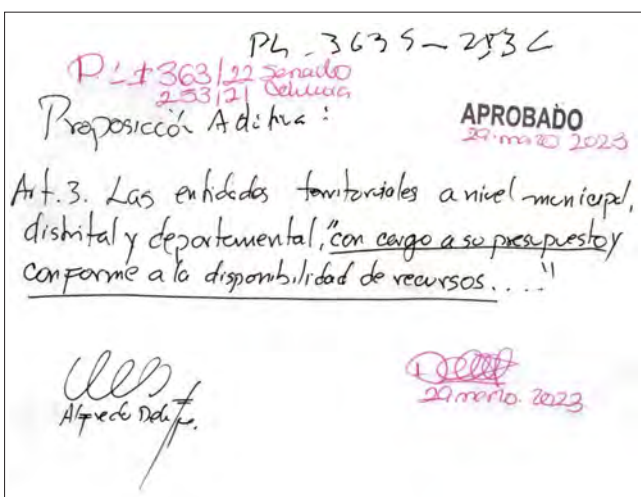 PL - 363 S - 253 C
PL # 363/22 Senado
253/21 Cámara
Proposición Aditiva:
APROBADO
29. marzo 2023
Art. 3. Las entidades territoriales a nivel municipal,
distrital y departamental, "con cargo a su presupuesto y
conforme a la disponibilidad de recursos...."
Alfredo Deluque.
29 marzo. 2023